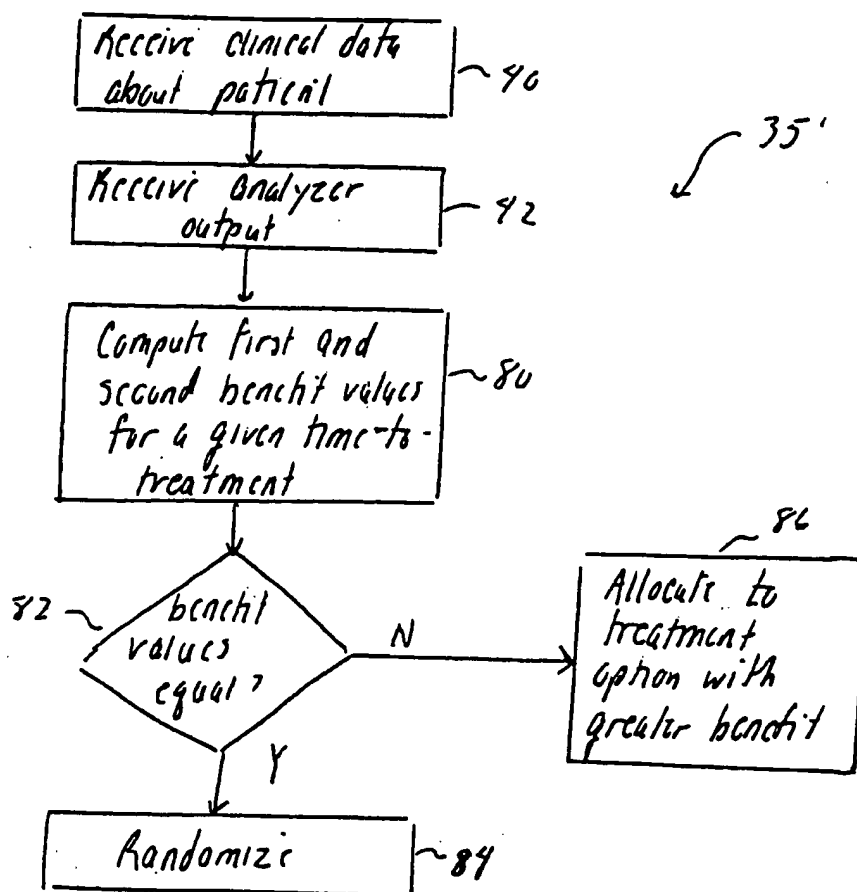 Receive clinical data
about patient
40
35'
Receive analyzer
output
42
Compute first and
second benefit values
for a given time-to-
treatment
80
86
82
benefit
values
equal?
N
Allocate to
treatment
option with
greater benefit
Y
Randomize
84